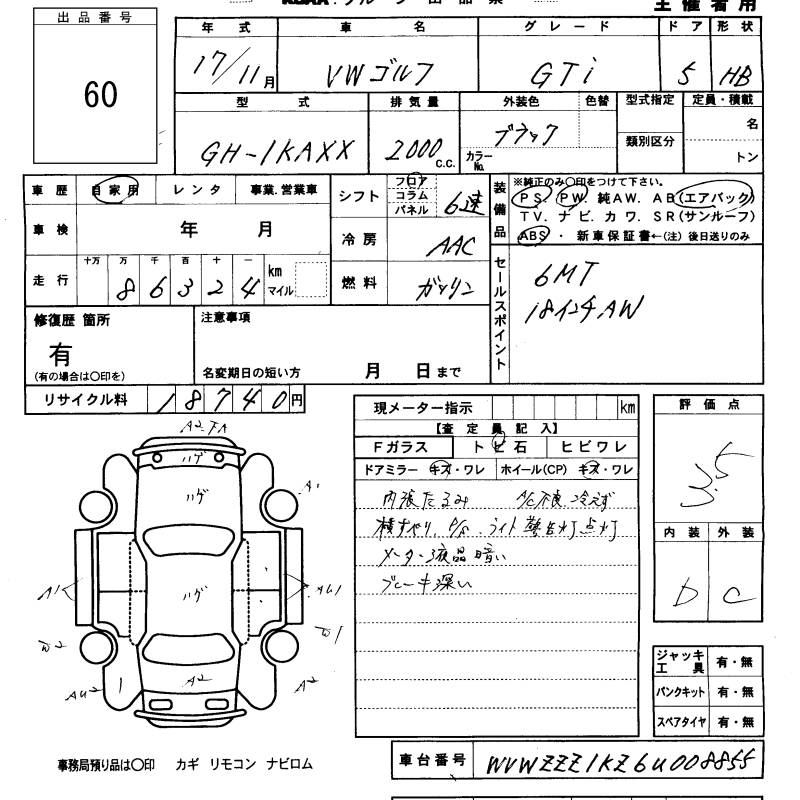 主催者用
出品番号
60
年式 車名 グレード ドア 形状
17/11月 VWゴルフ GTi 5 HB
型式 排気量 外装色 色替 型式指定 定員・積載
GH-1KAXX 2000 C.C. ブラック カラーNo. 類別区分 名 トン
車歴 自家用 レンタ 事業.営業車
シフト フロア コラム パネル 6速
装備品 ※純正のみ○印をつけて下さい。
PS. PW. 純AW. AB(エアバック)
TV. ナビ. カワ. SR(サンルーフ)
ABS ・ 新車保証書←(注) 後日送りのみ
車検 年 月
冷房 AAC
走行 十万 万 千 百 十 一
8 6 3 2 4 km マイル
燃料 ガソリン
セールスポイント
6MT
18インチAW
修復歴 箇所
有
(有の場合は○印を)
注意事項
名変期日の短い方 月 日まで
リサイクル料 18740円
現メーター指示 km
【査定員記入】
Fガラス トビ石 ヒビワレ
ドアミラー キズ・ワレ ホイール(CP) キズ・ワレ
内張たるみ A/C不良 冷えず
横すべり. P/S. ライト 警告灯 点灯
メーター液晶暗い
ブレーキ深い
評価点
3.5
内装 外装
D C
A2.FA
ハゲ
ハゲ
A1
ハゲ
A1
W2
W1
AU2
A2
A2
ジャッキ工具 有・無
パンクキット 有・無
スペアタイヤ 有・無
事務局預り品は○印 カギ リモコン ナビロム
車台番号 WVWZZZ1KZ6U008855